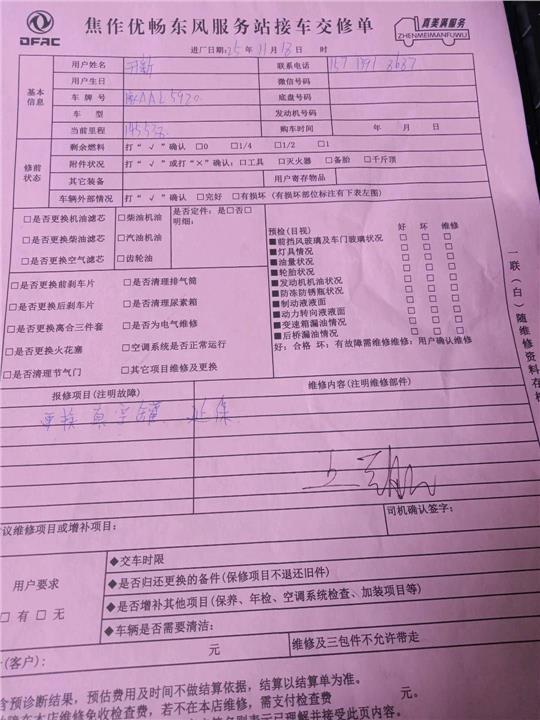 DFAC
焦作优畅东风服务站接车交修单
真美满服务
ZHENMEIMANFUWU
进厂日期:25年11月13日 时
基本信息
用户姓名
联系电话
用户生日
微信号码
车牌号
底盘号码
车 型
发动机号码
当前里程
购车时间
年 月 日
修前状态
剩余燃料 打“√”确认 □0 □1/4 □1/2 □1
附件状况 打“√”或打“×”确认:□工具 □灭火器 □备胎 □千斤顶
其它装备
用户寄存物品
车辆外部情况 打“√”确认 □完好 □有损坏(有损坏部位标注有下表左图)
□是否更换机油滤芯 □柴油机油
□是否更换柴油滤芯 □汽油机油
□是否更换空气滤芯 □齿轮油
是否定件:是□否□
明细:
□是否更换前刹车片 □是否清理排气筒
□是否更换后刹车片 □是否清理尿素箱
□是否更换离合三件套 □是否为电气维修
□是否更换火花塞 □空调系统是否正常运行
□是否清理节气门 □其它项目维修及更换
预检(目视) 好 坏 维修
■前挡风玻璃及车门玻璃状况 □ □ □
■灯具情况 □ □ □
■油量状况 □ □ □
■轮胎状况 □ □ □
■发动机机油状况 □ □ □
■防冻防锈瓶状况 □ □ □
■制动液液面 □ □ □
■动力转向液液面 □ □ □
■变速箱漏油情况 □ □ □
■后桥漏油情况 □ □ □
好:合格 坏:有故障需维修维修:用户确认维修
一联(白)随维修资料存档
报修项目(注明故障)
维修内容(注明维修部件)
更换真空罐 延保
司机确认签字:
议维修项目或增补项目:
用户要求
□有 □无
◆交车时限
◆是否归还更换的备件(保修项目不退还旧件)
◆是否增补其他项目(保养、年检、空调系统检查、加装项目等)
◆车辆是否需要清洁:
(客户):
元
维修及三包件不允许带走
含预诊断结果,预估费用及时间不做结算依据,结算以结算单为准。
障在本店维修免收检查费,若不在本店维修,需支付检查费 元。